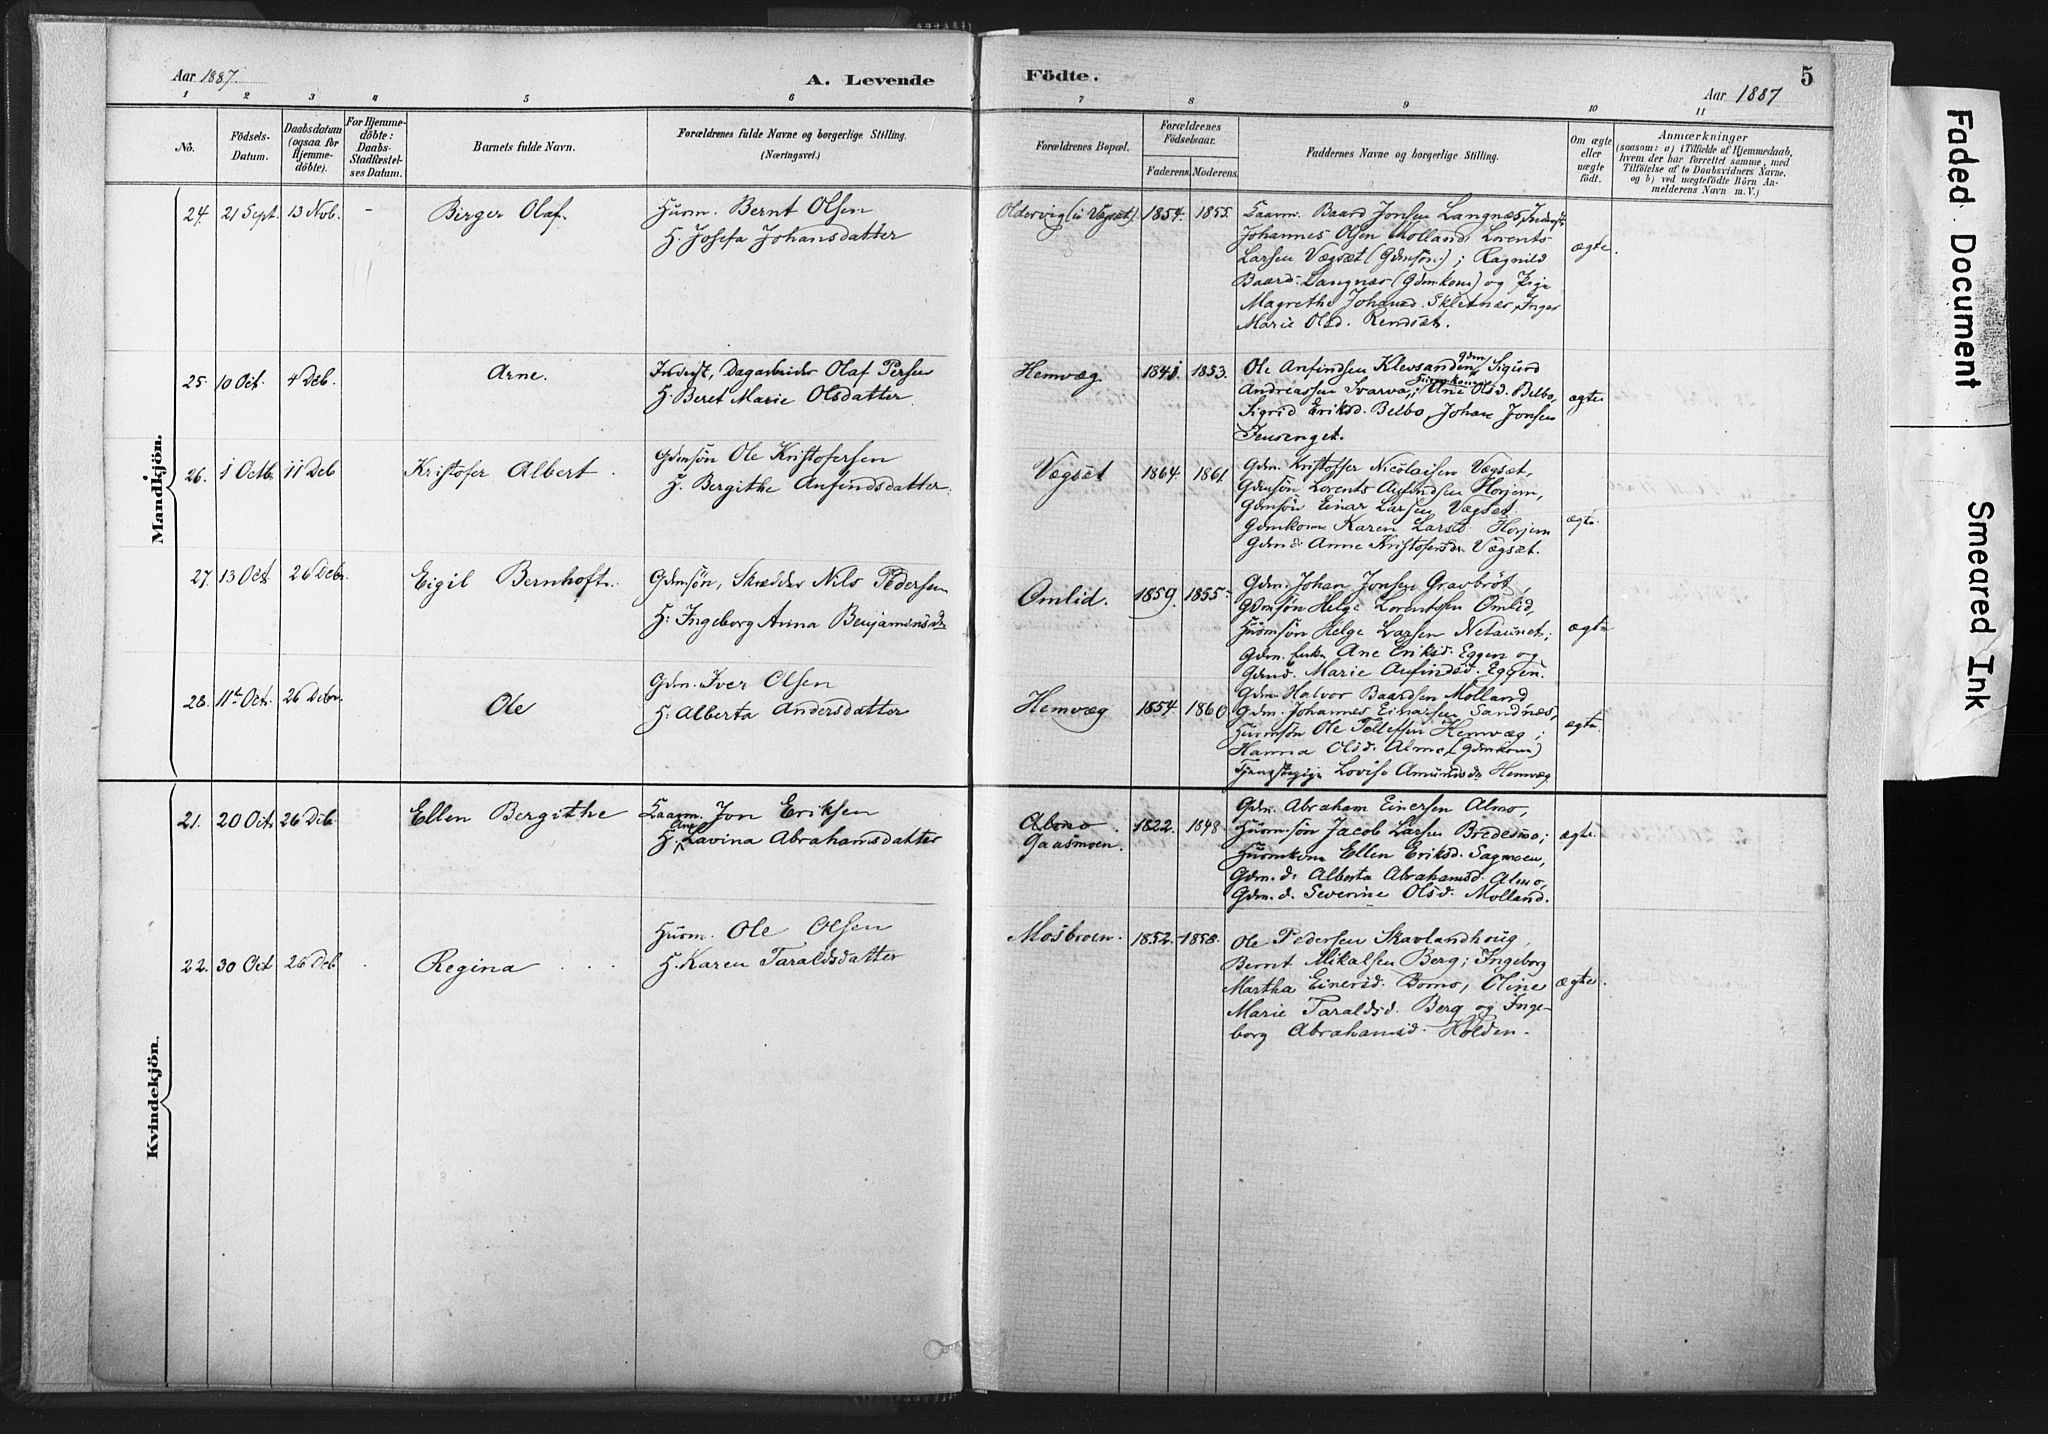 Aar 1887.
A. Levende
1 2 3 4 5 6
No.
Födsels-
Datum.
Daabsdatum
(ogsaa for
Hjemme-
döbte).
For Hjemme-
döbte:
Daabs-
Stadfæstel-
ses Datum.
Barnets fulde Navn.
Forældrenes fulde Navne og borgerlige Stilling.
(Næringsvei.)
Mandkjön.
24. 21 Sept. 13 Nov. - Birger Olaf.
Husm. Bernt Olsen
H. Josefa Johansdatter
25. 10 Oct. 4 Deb. Arne.
Inderst, Dagarbeider Olaf Persen
H. Beret Marie Olsdatter
26. 1 Octb. 11 Deb Kristofer Albert
Gdmsön Ole Kristofersen
H. Bergithe Anfindsdatter
27. 13 Oct 26 Debr. Eigil Bernhoft.
Gdmsön, Skrædder Nils Pedersen
H: Ingeborg Anna Benjaminsdr
28. 11te Oct. 26 Debr. Ole
Gdm. Iver Olsen
H: Alberta Andersdatter
Kvindekjön.
21. 20 Oct. 26 Deb. Ellen Bergithe
Laarm. Jon Eriksen
H. Ane Lavina Abrahamsdatter
22. 30 Oct 26 Deb. Regina
Husm. Ole Olsen
H. Karen Taraldsdatter
Födte.
5
Aar 1887
7 8 9 10 11
Forældrenes Bopæl.
Forældrenes
Födselsaar.
Faderens. Moderens.
Faddernes Navne og borgerlige Stilling.
Om ægte
eller
uægte
födt.
Anmærkninger
(saasom: a) i Tilfælde af Hjemmedaab,
hvem der har forrettet samme, med
Tilföielse af to Daabsvidners Navne.
og b) ved uægtefödte Börn An-
melderens Navn m. V.)
Oldervig (u Vægset) 1854. 1855. ægte.
Baard Jonsen Langnes, Inderst
Johannes Olsen Molland, Lorents
Larsen Vægset (Gdmsön); Ragnild
Baardd. Langnæs (Gdmkone) og Pige
Magrethe Johansd. Sletnæs, Inger
Marie Olsd. Rendset.
Hemvæg 1841. 1853. ægte
Ole Anfindsen Klevsanden Gdm, Sigurd
Andreassen Svarva; Ane Olsd. Belbo,
Sigrid Eriksd. Belbo, Johan Jonsen
Vægset 1864. 1861. ægte.
Gdm. Kristoffer Nicolaisen Vægset,
Gdmsön Lorents Anfindsen Horjem,
Gdmsön Einar Larsen Vægset.
Gdmkone Karen Larsd. Horjem
Gdmd. Anne Kristofersdr. Vægset.
Omlid. 1859. 1855. ægte
Gdm. Johan Jonsen Gravbröt,
Gdmsön Helge Lorentssen Omlid,
Husmsön Helge Larsen Netaunet;
Gdm. Ane Eriksd. Eggen og
Gdmd. Marie Anfindsd. Eggen.
Hemvæg 1854. 1860. ægte.
Gdm. Halvor Baardsen Molland
Gdm. Johannes Einarsen Sandnæs,
Husmsön Ole Tellefsen Hemvæg;
Hanna Olsd. Almo, (Gdmkone)
Tjenestepige Lovise Amundsdr. Hemvæg
Almo.
Gaasmoen. 1822. 1848. ægte.
Gdm. Abraham Einersen Almo,
Husmsön Jacob Larsen Bredesmo;
Husmkone Ellen Eriksd. Sagmoen,
Gdm.d. Alberta Abrahamsd. Almo,
Gdm.d. Severine Olsd. Molland.
Mosbroen. 1852. 1858. ægte.
Ole Pedersen Skavlandhoug,
Bernt Mikalsen Berg; Ingeborg
Martha Einersd. Bomo, Oline
Marie Taraldsd. Berg og Inge-
borg Abrahamsd. Holden.
Faded Document
Smeared Ink